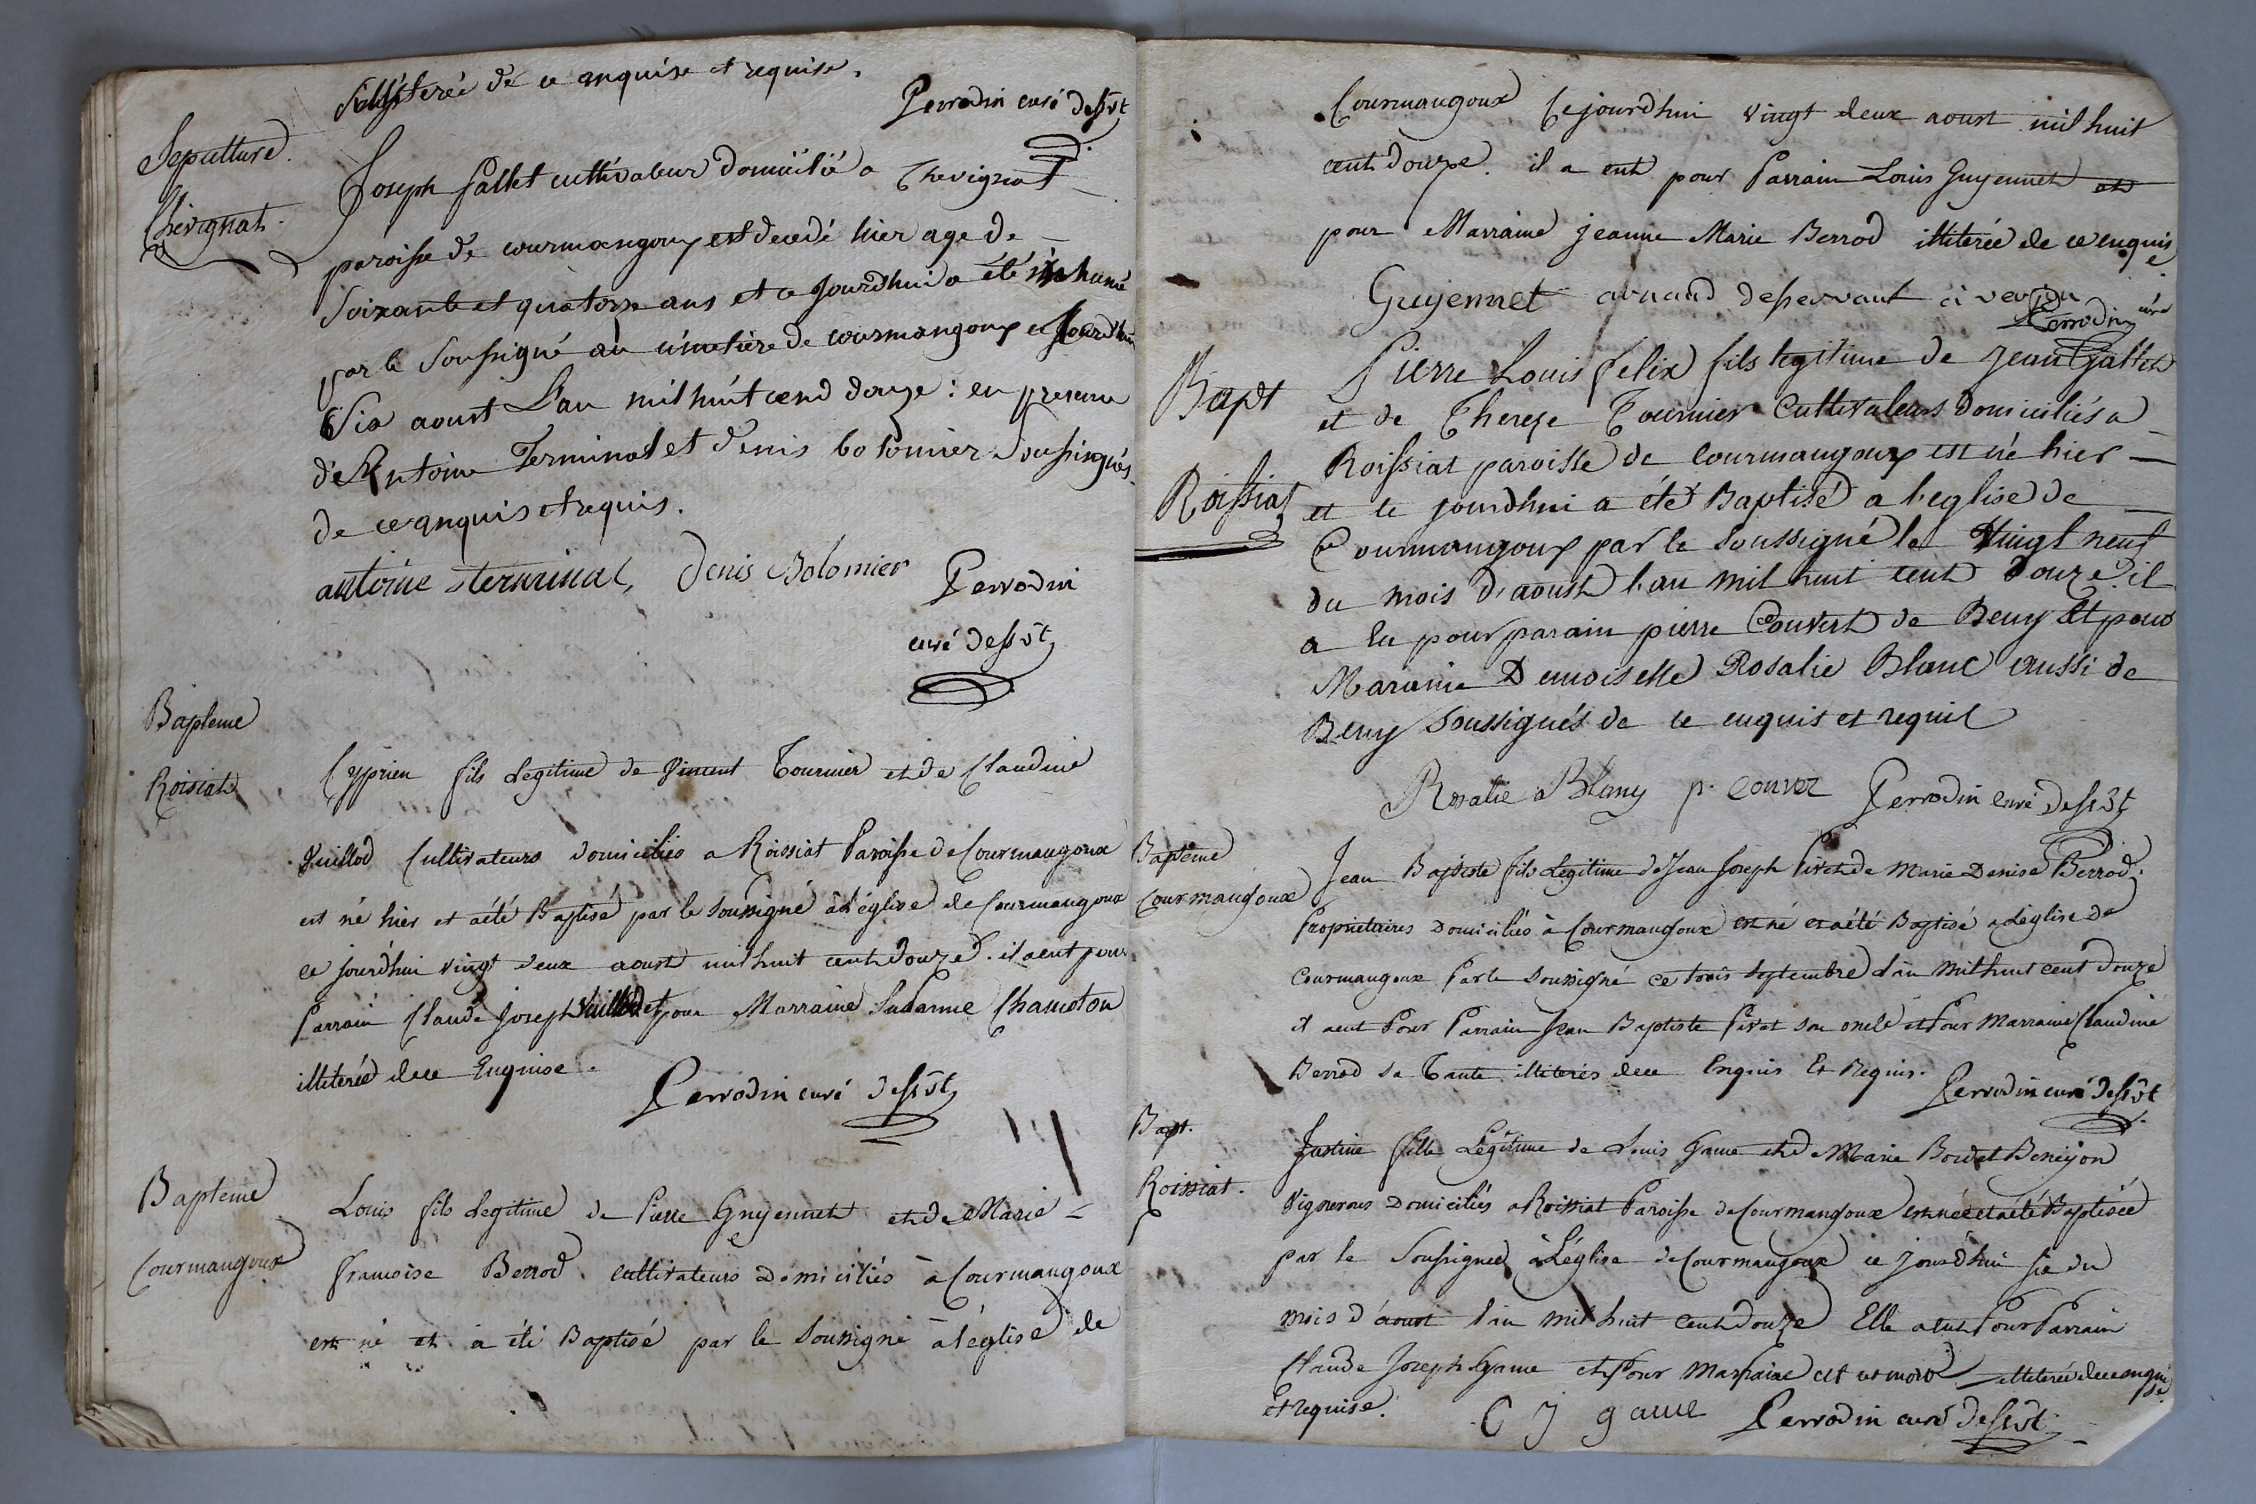 illiterée de ce anquise et requise.
Perrodin curé dessvt
Sepulture.
Chevignat.
Joseph fallet cultivateur domicilié a Chevignat
paroisse de courmangoux est decedé hier age de
Soixante et quatorze ans et ce jourdhui a été inhumé
par le Soussigné au cimetière de courmangoux ce jourdhui
Six aoust L'an mil huit cend douze : en presence
de Antoine Terminal et denis bolomier Soussignés
de ce anquis et requis.
antoine terminal, denis Bolomier Perrodin
curé dessvt
Bapteme
Roisiat
Cyprien fils legitime de Vincent Tournier et de Claudine
Vuillod Cultivateurs domiciliés a Roissiat Paroisse de Courmangoux
est né hier et a été Baptisé par le soussigné à l'église de Courmangoux
ce jourd'hui vingt deux aoust mil huit cent douze. il a eut pour
Parrain Claude Joseph Vuillod et pour Marraine Susanne Chamoton
illiterée de ce Enquise.
Perrodin curé dessvt
Bapteme
Courmangoux
Louis fils legitime de Pierre Guyennet et de Marie
francoise Berrod cultivateurs domiciliés à Courmangoux
est né et a été Baptisé par le soussigné à l'église de
Courmangoux Cejourdhui vingt deux aoust mil huit
cent douze. il a eut pour Parrain Louis Guyennet et
pour Marraine jeanne Marie Berrod illiterée de ce enquise
Guyennet desservant à verjon
Perrodin curé
Bapt
Roissiat
Pierre Louis felix fils legitime de Jean Gallet
et de Therese Tournier Cultivateurs domiciliés a
Roissiat paroisse de Courmangoux est né hier
et ce jourdhui a été Baptisé a l'eglise de
Courmangoux par le soussigné le Vingt neuf
du mois d'aoust l'an mil huit cent douze il
a Eu pour parain pierre Couvert de Beny Et pour
Maraine Demoiselle Rosalie Blanc aussi de
Beny Soussignés de ce enquis et requis
Rosalie Blanc p. couver Perrodin curé dessvt
Bapteme
Courmangoux
Jean Baptiste fils Legitime de Jean Joseph Pivet de Marie Denise Berrod.
Proprietaires Domiciliés à Courmangoux est né et a été Baptisé a L'église de
Courmangoux Par le soussigné ce trois septembre L'an Mil huit cent douze
il a eut Pour Parrain Jean Baptiste Pivet son oncle et Pour Marraine Claudine
Berrod sa Tante illiterés de ce Enquis Et Requis.
Perrodin curé dessvt
Bapt.
Roissiat.
Justine fille Legitime de Louis Game et de Marie
Vignerons Domiciliés a Roissiat Paroisse de Courmangoux est née et a été Baptisée
par le Soussigné à L'église de Courmangoux ce jourdhui six du
mois d'aoust L'an mil huit cent douze Elle a eut Pour Parrain
Claude Joseph Game et Pour Marraine illiterée de ce enquise
et requise.
C J game Perrodin curé dessvt